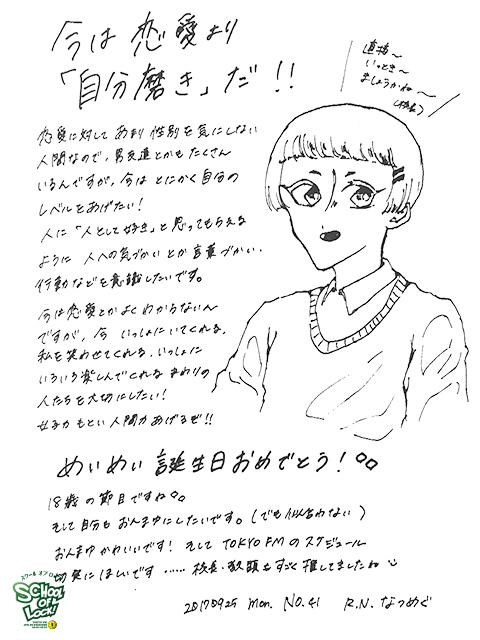 今は恋愛より
「自分磨き」だ!!
直接〜
いっとき〜
ましょうかね〜
(校長)
恋愛に対してあまり性別を気にしない
人間なので、男友達とかもたくさん
いるんですが、今はとにかく自分の
レベルをあげたい!
人に「人として好き」と思ってもらえる
ように人への気づかいとか言葉づかい・
行動などを意識したいです。
今は恋愛とかよくわからないん
ですが、今いっしょにいてくれる、
私を笑わせてくれる、いっしょに
いろいろ楽しんでくれるまわりの
人たちを大切にしたい!
女子力もとい人間力あげるぜ!!
めぃめぃ誕生日おめでとう!
18歳の節目ですね
そして自分もおんまゆにしたいです。(でも似合わない)
おんまゆかわいいです! そして TOKYO FMのスケジュール
切実にほしいです……校長・教頭もすごく推してましたね
スクールオブロック!
SCHOOL OF LOCK!
20170925 mon. NO.41 R.N. なつめぐ